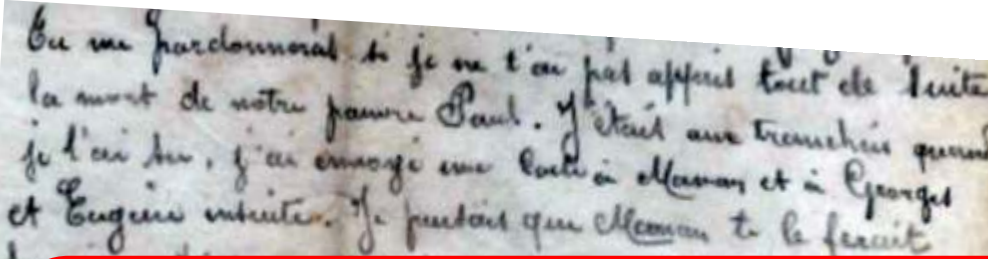 Tu me pardonneras si je ne t'ai pas appris tout de suite
la mort de notre pauvre Paul. J'étais aux tranchées quand
je l'ai su, j'ai envoyé une carte à Maman et à Georges
et Eugène ensuite. Je pensais que Maman te le ferait